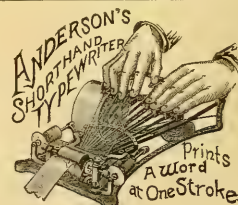 ANDERSON'S
SHORTHAND
TYPEWRITER
Prints
A Word
at One Stroke